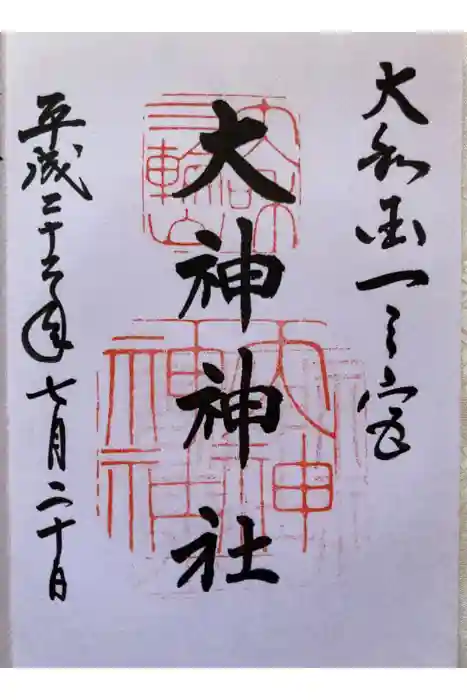 大和国一之宮
大神神社
平成二十六年七月二十日
三輪山
大神神社